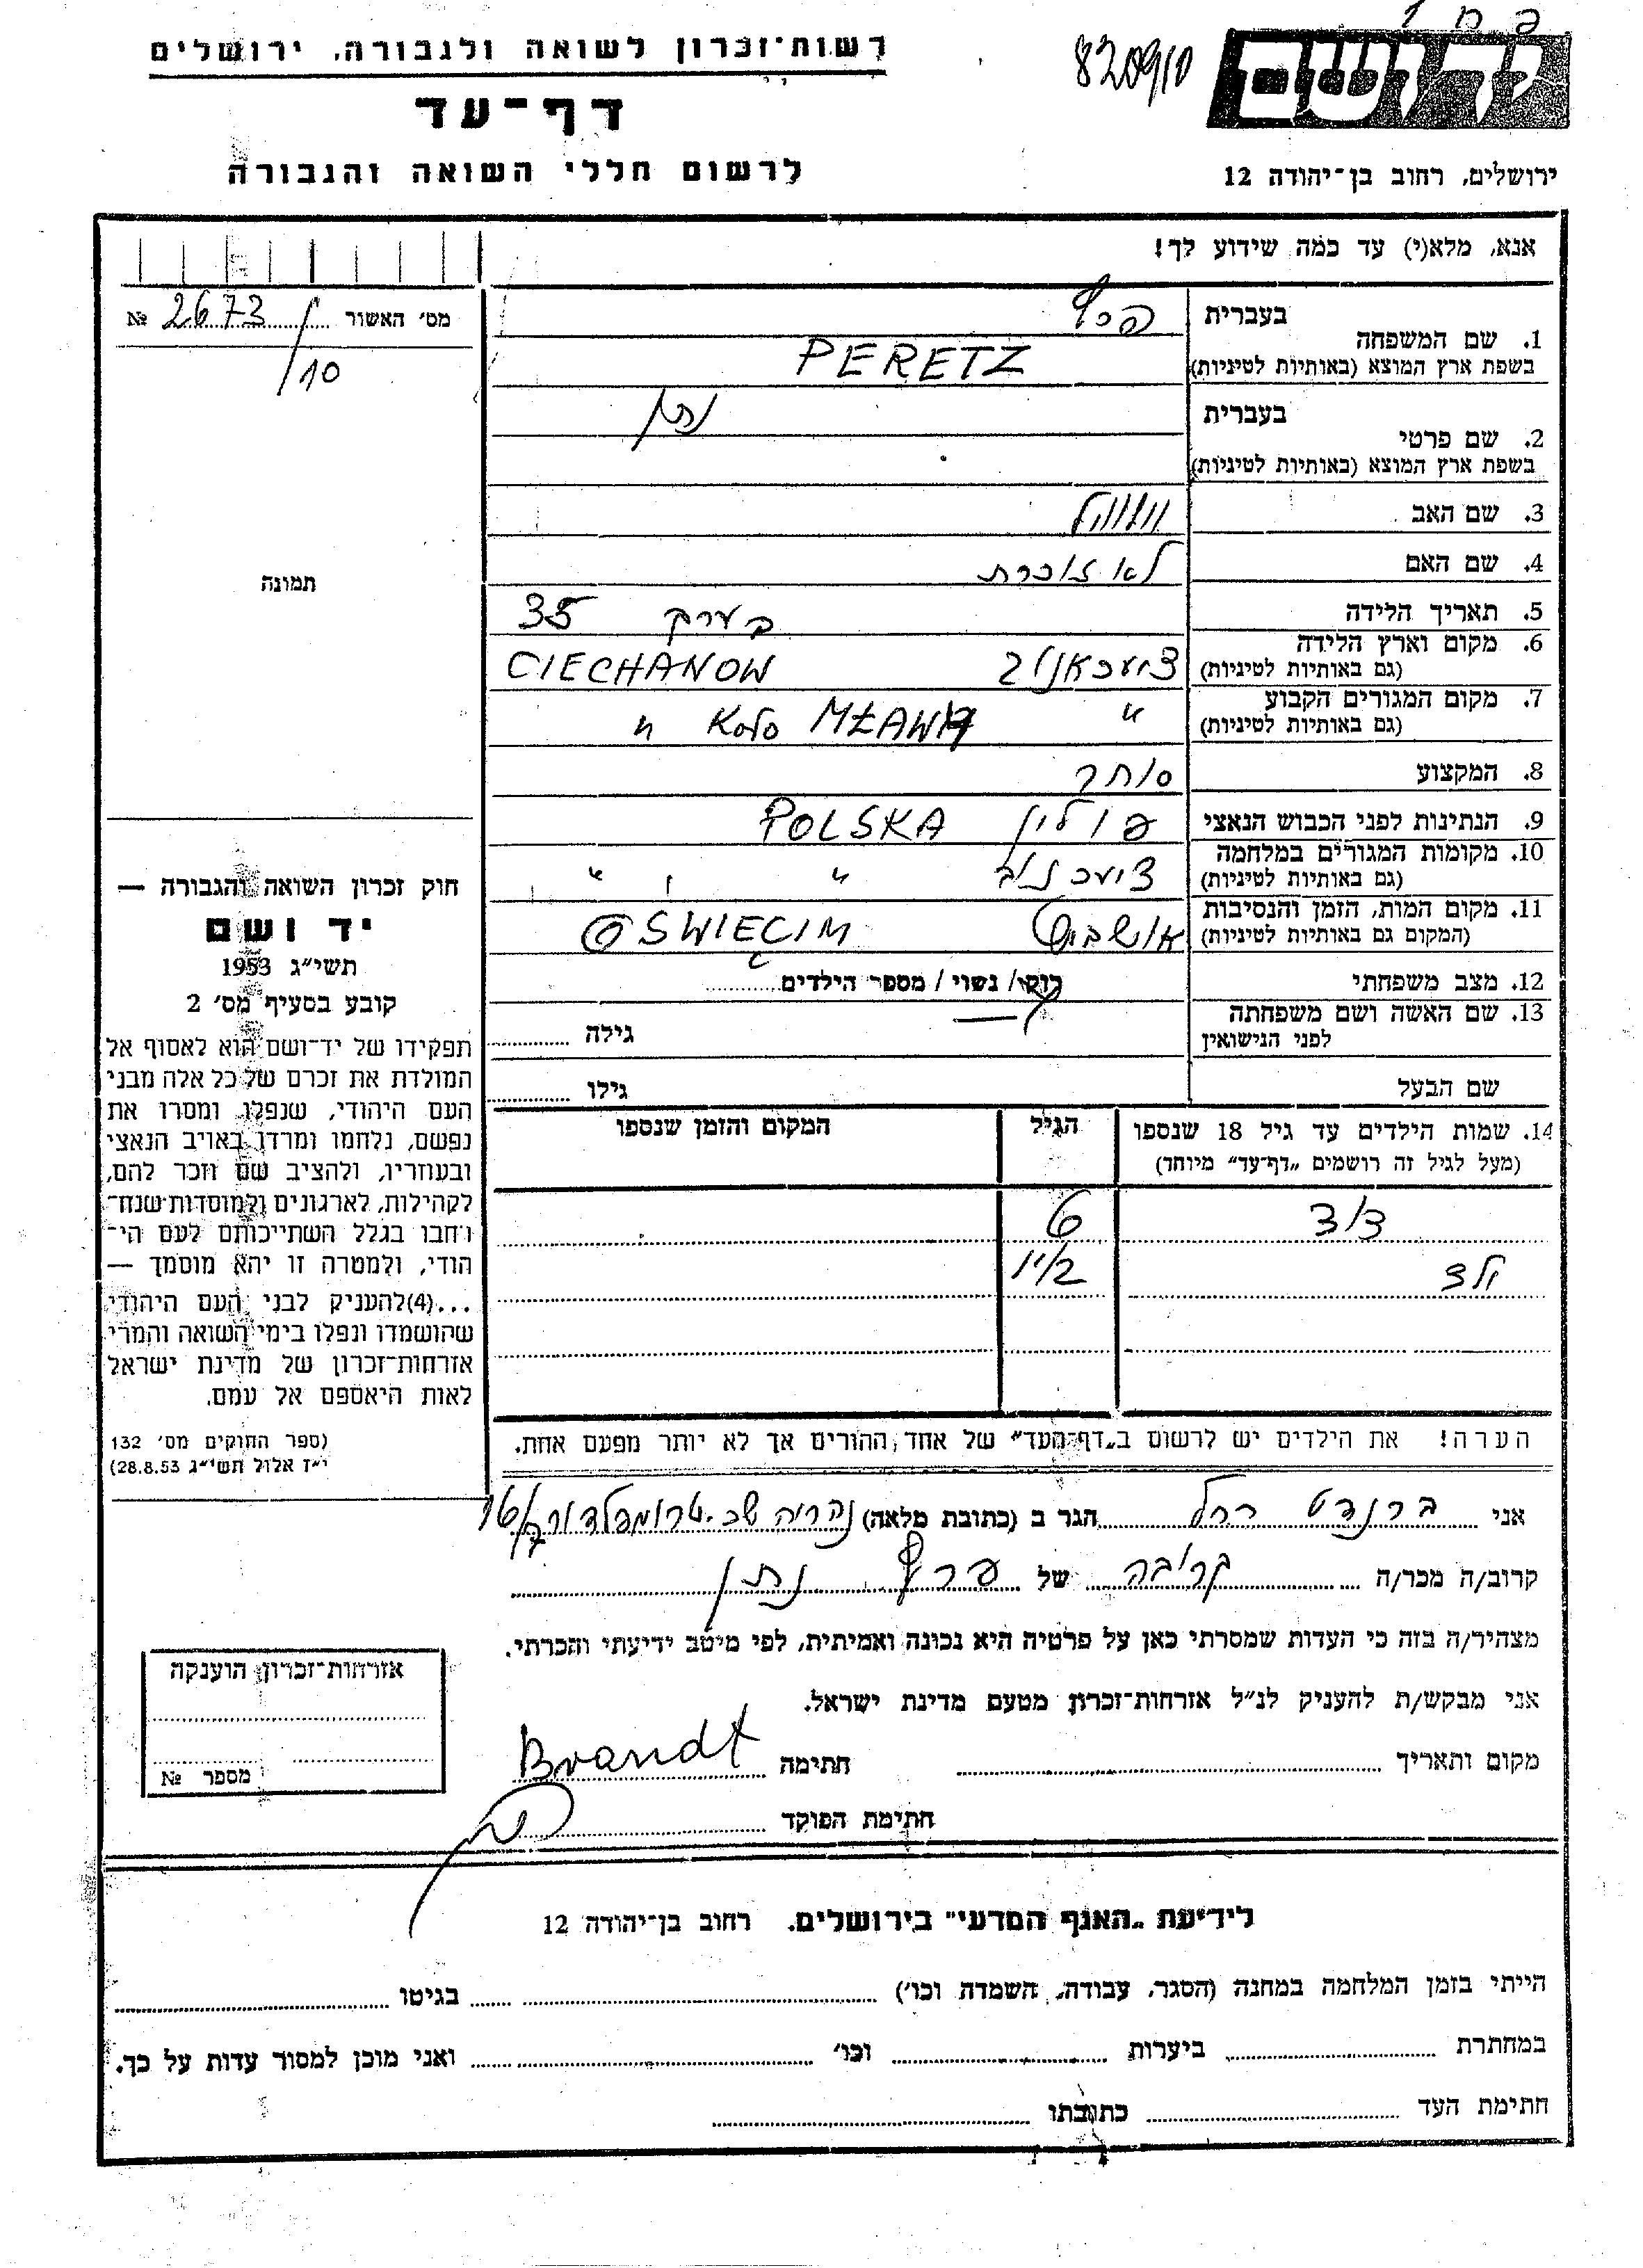 רשות־זכרון לשואה ולגבורה, ירושלים
820910
יד ושם
דף־עד
לרשום חללי השואה והגבורה
ירושלים, רחוב בן־יהודה 12
אנא, מלא(י) עד כמה שידוע לך!
מס׳ האשור 2673 №
/10
תמונה
1. שם המשפחה
בעברית פרץ
בשפת ארץ המוצא (באותיות לטיניות) PERETZ
2. שם פרטי
בעברית נתן
בשפת ארץ המוצא (באותיות לטיניות)
3. שם האב
4. שם האם לא זוכרת
5. תאריך הלידה בערך 35
6. מקום וארץ הלידה
(גם באותיות לטיניות) ציעכאנוב CIECHANOW
7. מקום המגורים הקבוע
(גם באותיות לטיניות) " KOŁO MŁAWA "
8. המקצוע סוחר
9. הנתינות לפני הכבוש הנאצי פולין POLSKA
10. מקומות המגורים במלחמה
(גם באותיות לטיניות) ציעכנוב " " "
11. מקום המות, הזמן והנסיבות
(המקום גם באותיות לטיניות) אושביץ OŚWIĘCIM
12. מצב משפחתי רוק/ נשוי / מספר הילדים
13. שם האשה ושם משפחתה
לפני הנישואין גילה
שם הבעל גילו
14. שמות הילדים עד גיל 18 שנספו
(מעל לגיל זה רושמים „דף־עד" מיוחד)
הגיל
המקום והזמן שנספו
6
ילד 1 1/2
הערה! את הילדים יש לרשום ב„דף־העד" של אחד ההורים אך לא יותר מפעם אחת.
חוק זכרון השואה והגבורה —
יד ושם
תשי״ג 1953
קובע בסעיף מס׳ 2
תפקידו של יד־ושם הוא לאסוף אל
המולדת את זכרם של כל אלה מבני
העם היהודי, שנפלו ומסרו את
נפשם, נלחמו ומרדו באויב הנאצי
ובעוזריו, ולהציב שם וזכר להם,
לקהילות, לארגונים ולמוסדות שנח־
רבו בגלל השתייכותם לעם הי־
הודי, ולמטרה זו יהא מוסמך —
...(4) להעניק לבני העם היהודי
שהושמדו ונפלו בימי השואה והמרי
אזרחות־זכרון של מדינת ישראל
לאות היאספם אל עמם.
(ספר החוקים מס׳ 132
י״ז אלול תשי״ג 28.8.53)
אני ברנדט רחל הגר ב (כתובת מלאה) נהריה שכ. טרומפלדור
קרוב/ה מכר/ה קרובה של פרץ נתן
מצהיר/ה בזה כי העדות שמסרתי כאן על פרטיה היא נכונה ואמיתית, לפי מיטב ידיעתי והכרתי.
אני מבקש/ת להעניק לנ״ל אזרחות־זכרון מטעם מדינת ישראל.
מקום ותאריך חתימה Brandt
חתימת הפוקד
אזרחות־זכרון הוענקה
מספר №
לידיעת „האגף המדעי" בירושלים. רחוב בן־יהודה 12
הייתי בזמן המלחמה במחנה (הסגר, עבודה, השמדה וכו׳) בגיטו
במחתרת ביערות וכו׳ ואני מוכן למסור עדות על כך.
חתימת העד כתובתו